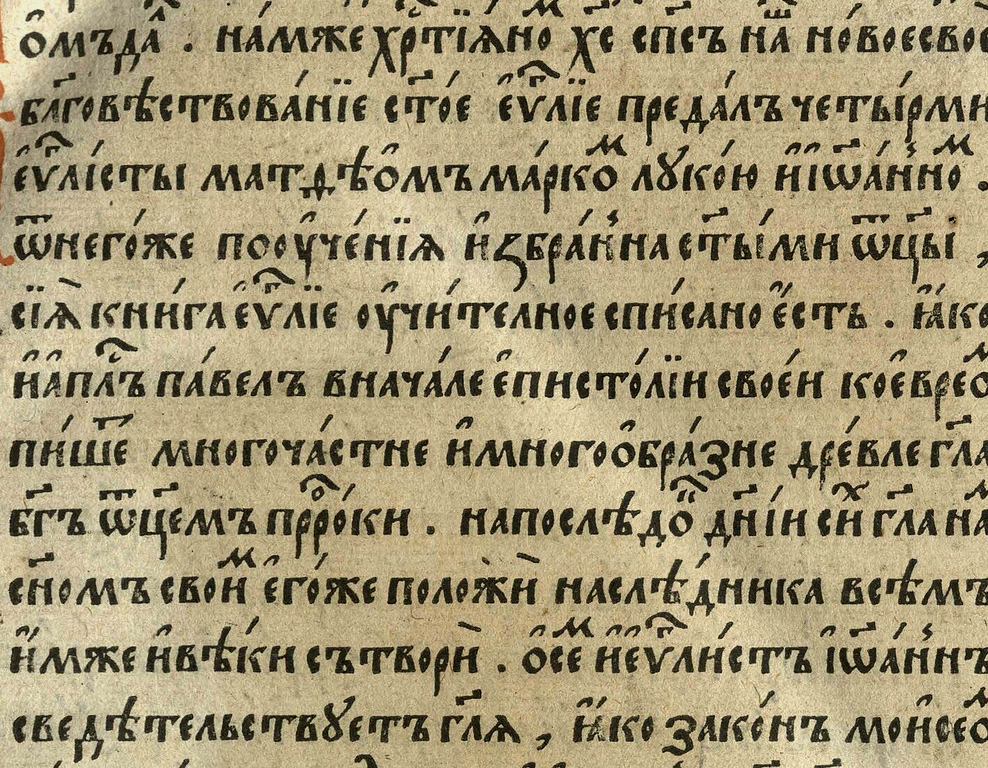 ѻ҆мъда̀ . на́мже хрⷭ҇тїѧноⷨ х҃с сп҃съ на́ш но́воесвое
блг҃овѣствова́нїе ст҃о́е є҆ѵⷢ҇лїе преда́лъ четы́рми
є҆ѵⷢ҇лісты матѳѣѻ҆мъ ма́ркоⷨ лꙋко́ю и҆ іѡа́нноⷨ .
ѿнего́же поѹче́нїѧ и҆збра́ннаѧ ст҃ы́ми ѿц҃ы ,
сїѧ̀ кни́га є҆ѵⷢ҇лїе ѹ҆чи́телное спи́сано є҆́сть . ꙗ҆́ко
и҆ а҆пⷭ҇лъ па́велъ внача́ле є҆писто́лїи свое́и коевреѻⷨ
пи́шеⷮ многоча́стне и҆многоѻ҆бра́зне дре́вле гл҃а
бг҃ъ ѿц҃емъ прⷪ҇ро́ки . напослѣдоⷦ҇ дн҃і́и сиⷯ гл҃а наⷨ
сн҃омъ своиⷨ є҆го́же положѝ наслѣ́дника всѣ́мъ
и҆́мже и҆вѣ́ки сътворѝ . ѻ҆се́ⷨ и҆ є҆ѵⷢ҇ли́стъ іѡа́ннъ
сведѣ́тельствꙋетъ гл҃ѧ , ꙗ҆́ко зако́нъ моисеоⷨ